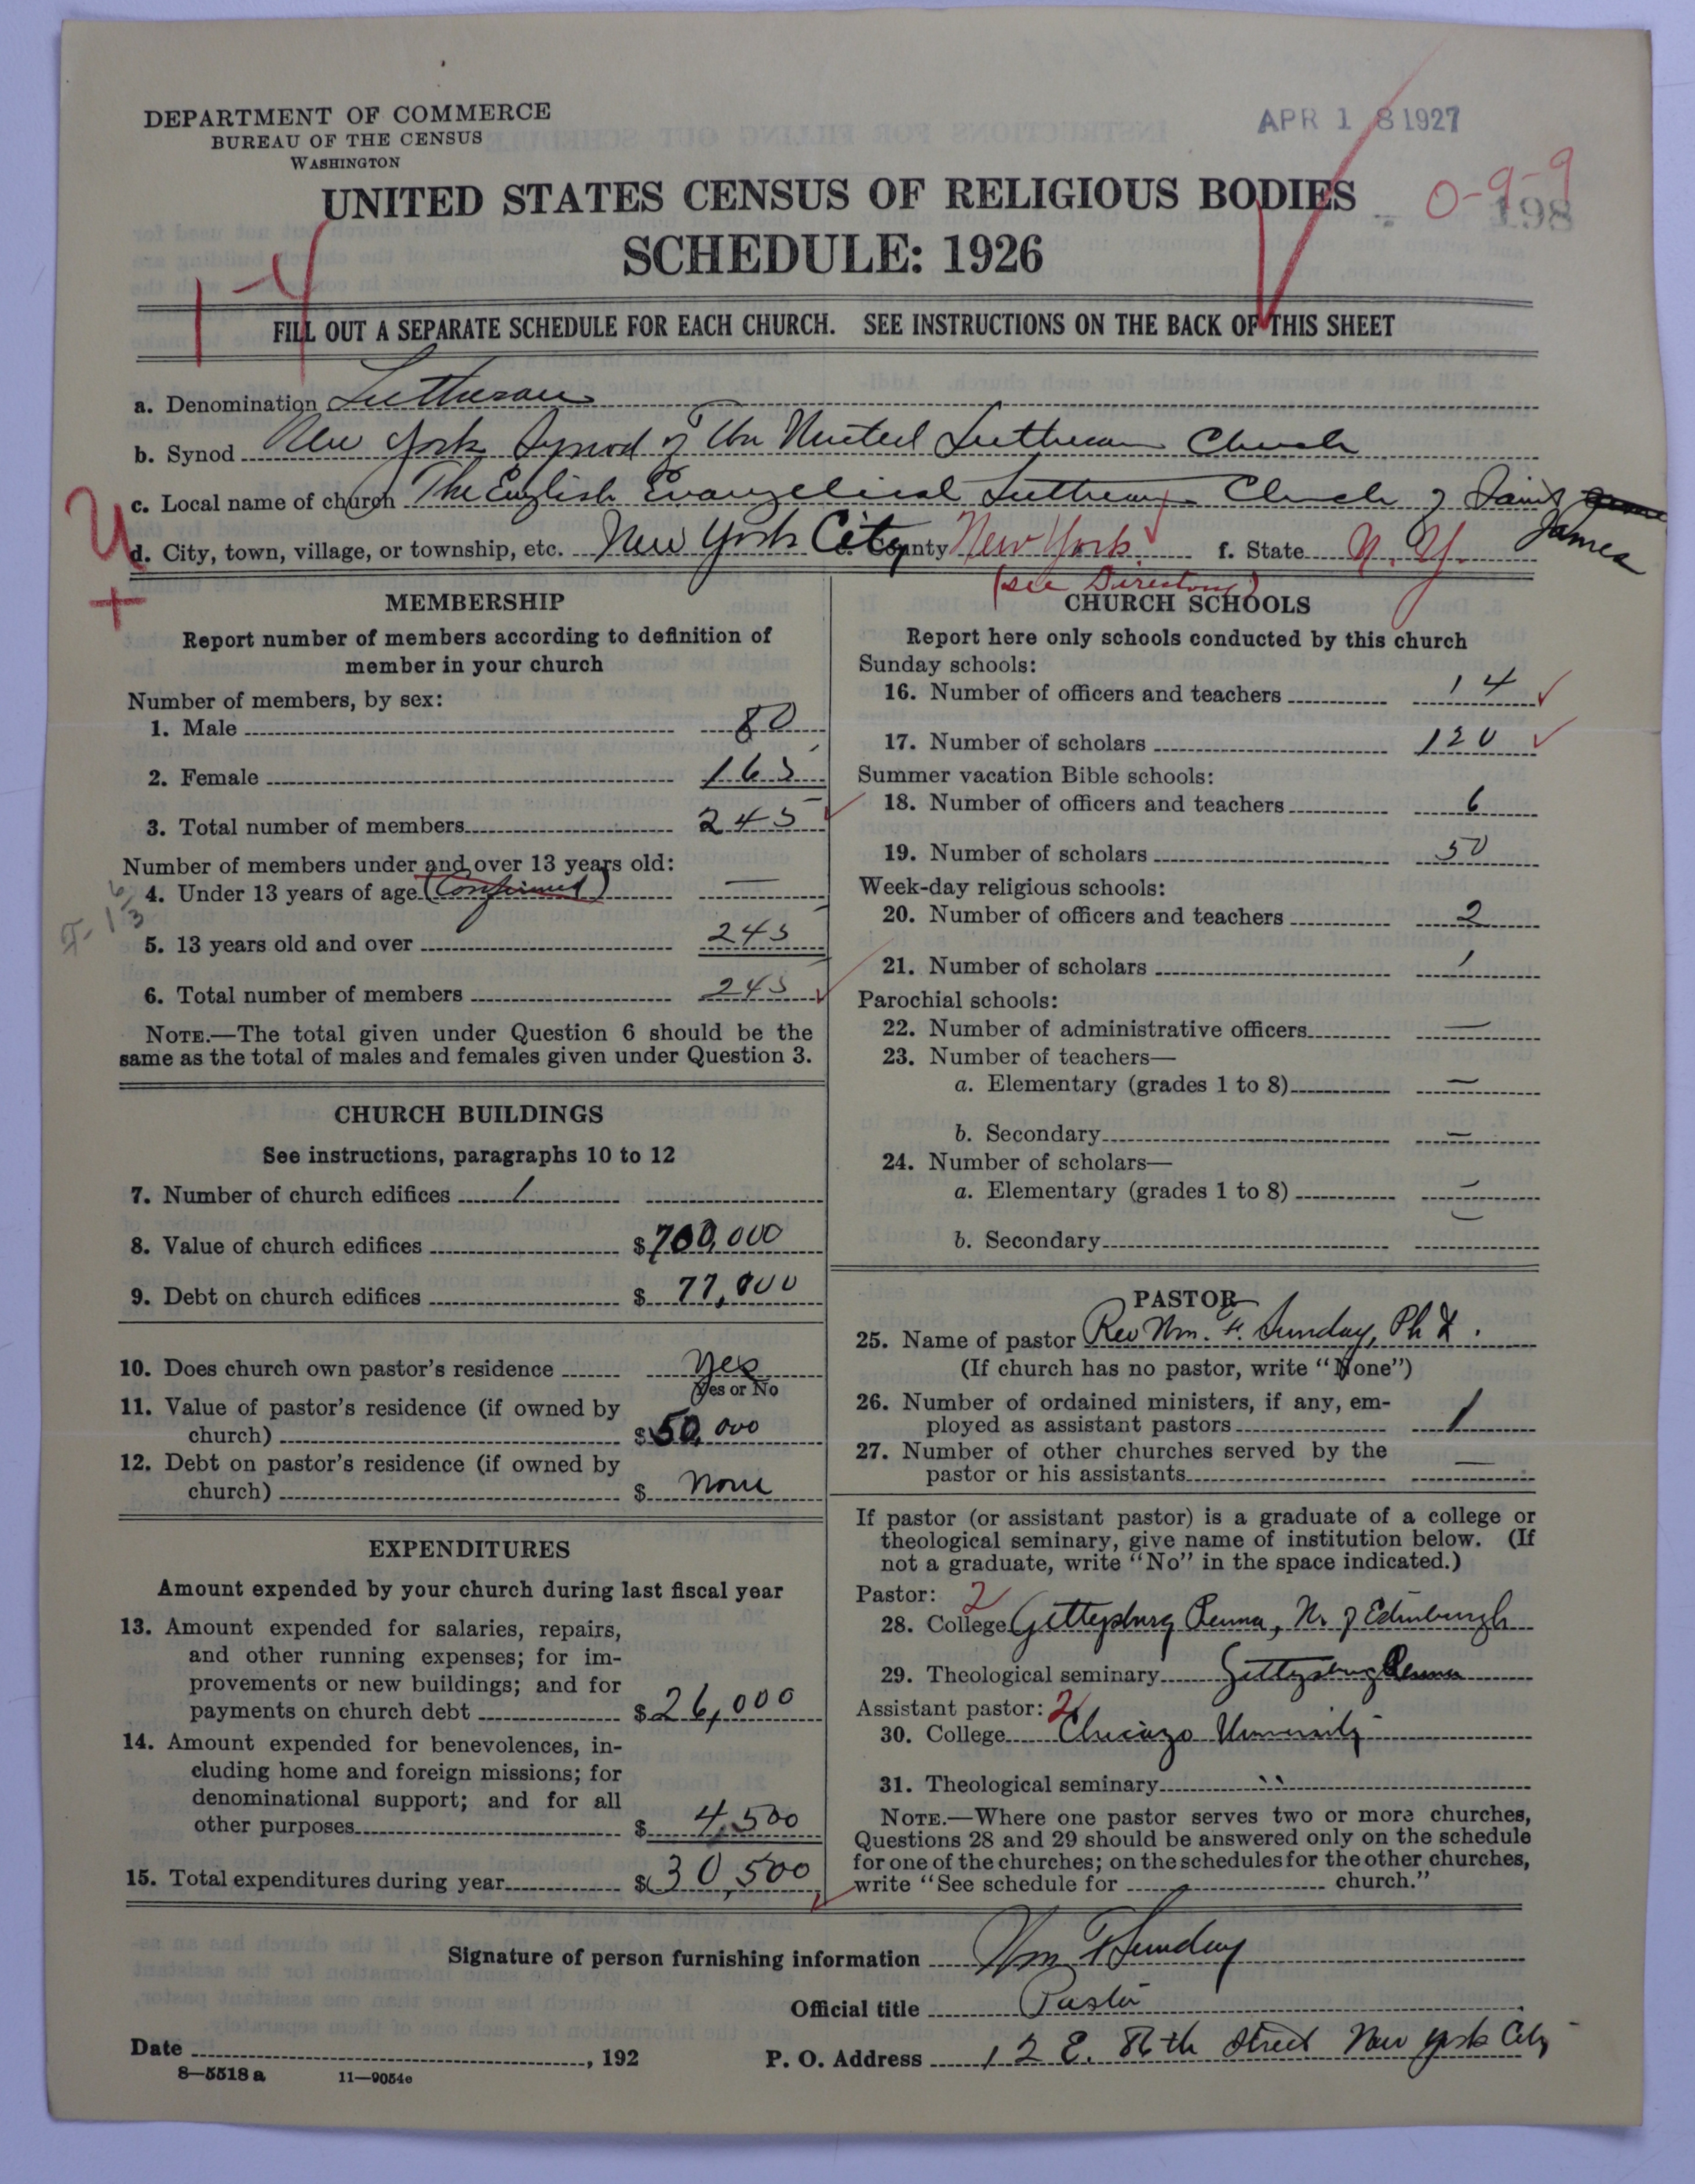 DEPARTMENT OF COMMERCE
BUREAU OF THE CENSUS
WASHINGTON
APR 18 1927
UNITED STATES CENSUS OF RELIGIOUS BODIES
0-9-9
198
SCHEDULE: 1926
FILL OUT A SEPARATE SCHEDULE FOR EACH CHURCH. SEE INSTRUCTIONS ON THE BACK OF THIS SHEET
a. Denomination Lutheran
b. Synod New York Synod of The United Lutheran Church
c. Local name of church The English Evangelical Lutheran Church of Saint James
d. City, town, village, or township, etc. New York City County New York f. State N. Y.
(see Directory)
U
+
MEMBERSHIP
Report number of members according to definition of
member in your church
Number of members, by sex:
1. Male 80
2. Female 165
3. Total number of members 245
Number of members under and over 13 years old:
4. Under 13 years of age (Confirmed) —
5. 13 years old and over 245
6. Total number of members 245
NOTE.—The total given under Question 6 should be the
same as the total of males and females given under Question 3.
CHURCH BUILDINGS
See instructions, paragraphs 10 to 12
7. Number of church edifices 1
8. Value of church edifices $700,000
9. Debt on church edifices $77,000
10. Does church own pastor's residence yes
Yes or No
11. Value of pastor's residence (if owned by
church) $50,000
12. Debt on pastor's residence (if owned by
church) $ none
EXPENDITURES
Amount expended by your church during last fiscal year
13. Amount expended for salaries, repairs,
and other running expenses; for im-
provements or new buildings; and for
payments on church debt $26,000
14. Amount expended for benevolences, in-
cluding home and foreign missions; for
denominational support; and for all
other purposes $ 4,500
15. Total expenditures during year $30,500
CHURCH SCHOOLS
Report here only schools conducted by this church
Sunday schools:
16. Number of officers and teachers 14
17. Number of scholars 120
Summer vacation Bible schools:
18. Number of officers and teachers 6
19. Number of scholars 50
Week-day religious schools:
20. Number of officers and teachers 2
21. Number of scholars
Parochial schools:
22. Number of administrative officers —
23. Number of teachers—
a. Elementary (grades 1 to 8) —
b. Secondary —
24. Number of scholars—
a. Elementary (grades 1 to 8) —
b. Secondary —
PASTOR
25. Name of pastor Rev Wm. F. Sunday, Ph D.
(If church has no pastor, write "None")
26. Number of ordained ministers, if any, em-
ployed as assistant pastors 1
27. Number of other churches served by the
pastor or his assistants —
If pastor (or assistant pastor) is a graduate of a college or
theological seminary, give name of institution below. (If
not a graduate, write "No" in the space indicated.)
Pastor: 2
28. College Gettysburg Penna, U. of Edinburgh
29. Theological seminary Gettysburg Penna
Assistant pastor: 2
30. College Chicago University
31. Theological seminary "
NOTE.—Where one pastor serves two or more churches,
Questions 28 and 29 should be answered only on the schedule
for one of the churches; on the schedules for the other churches,
write "See schedule for church."
Signature of person furnishing information Wm F Sunday
Official title Pastor
Date , 192
P. O. Address 12 E. 86th Street New York City
8—5518 a 11—9054e